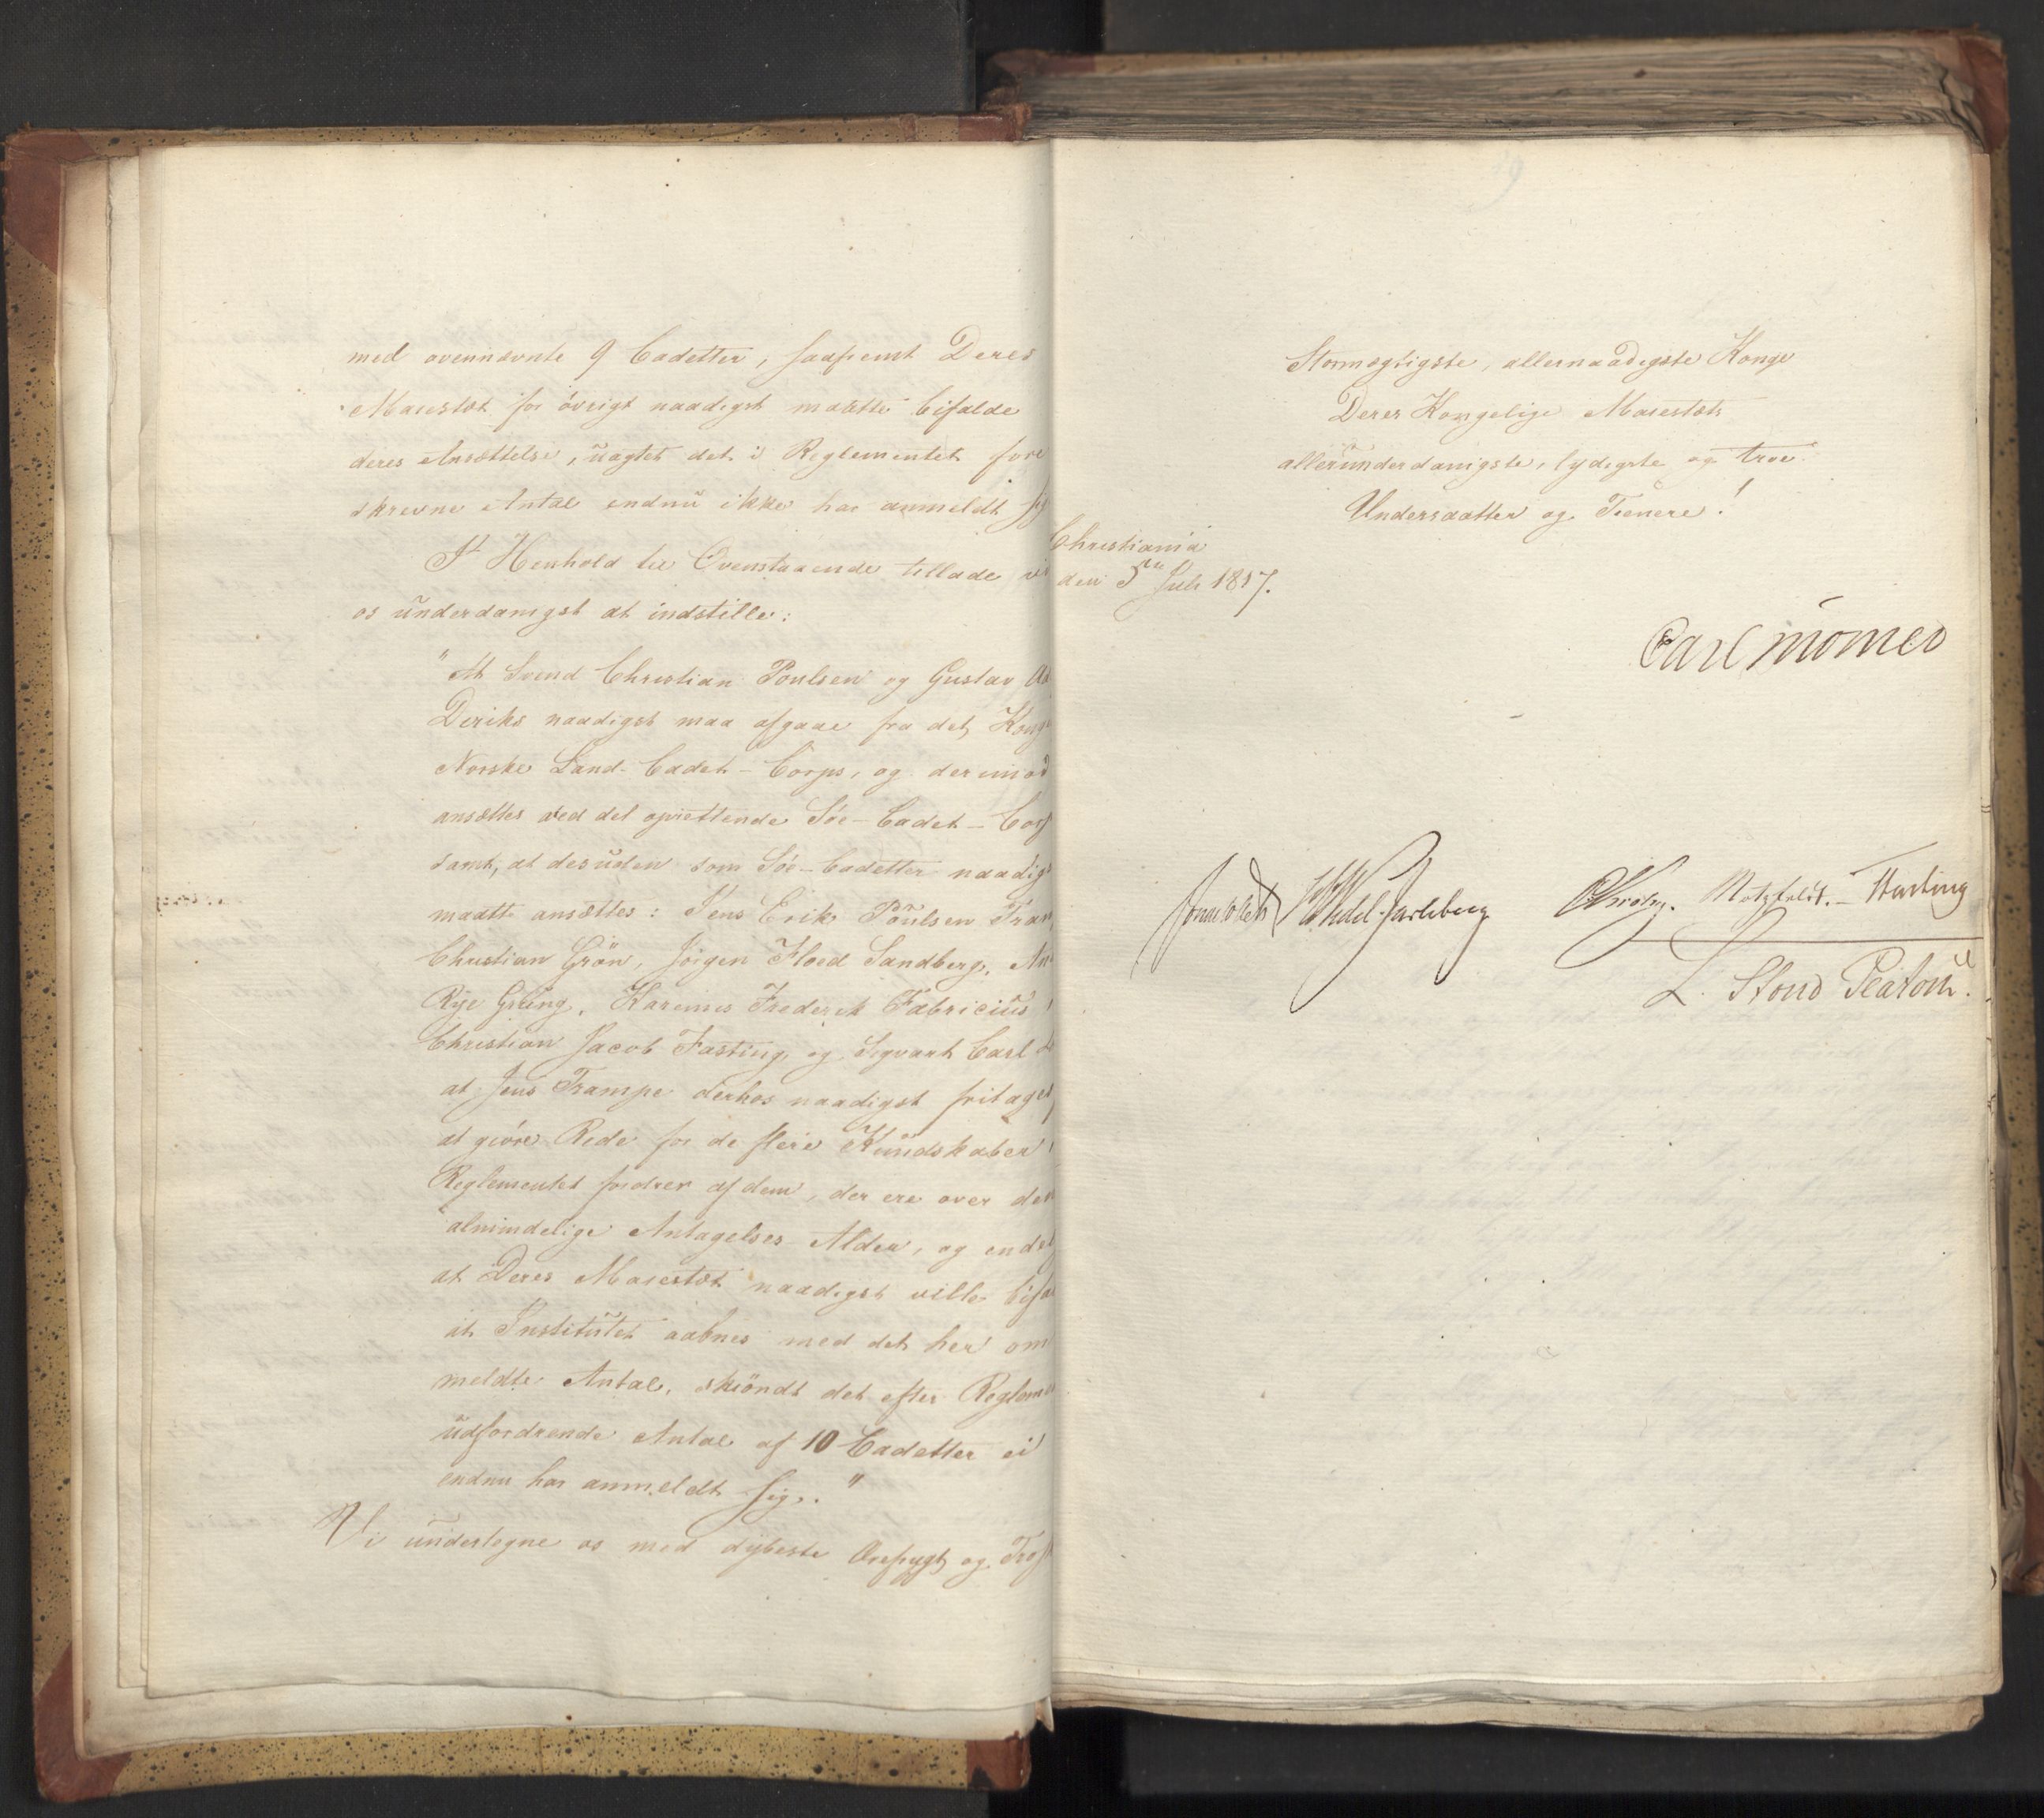 med ovennævnte 9 Cadetter, saafremt Deres
Maiestæt for övrigt naadigst maatte bifalde
deres Ansættelse, uagtet det i Reglementet fore
skrevne Antal endnu ikke har anmeldt sig
I Henhold til Ovenstaaende tillade vi
os underdanigst at indstille:
"At Svend Christian Poulsen og Gustav Ad
Deriks naadigst maa afgaae fra det Konge
Norske Land-Cadet-Corps, og derimod
ansættes ved det oprettende Söe-Cadet-Corp
samt, at desuden som Söe-Cadetter naadigs
maatte ansættes: Jens Erik Poulsen Tram
Christian Grön, Jörgen Floed Sandberg,
Rye Grüng, Frederik Fabricius,
Christian Jacob Fasting, og Sigvart Carl
at Jens Trampe derhos naadigst fritages
at giöre Rede for de flere Kundskaber
Reglementet fordrer af dem, der ere over den
almindelige Antagelses Alder, og endel
at Deres Maiestæt naadigst ville bifal
at Institutet aabnes med det her om
meldte Antal, skiöndt det efter Reglem
udfordrende Antal af 10 Cadetter ei
endnu har anmeldt sig."
Vi undertegne os med dybeste Ærefrygt og Trosk
Stormægtigste, allernaadigste Konge
Deres Kongelige Maiestæts
allerunderdanigste, lydigste og troe
Undersaatter og Tienere!
Christiania
den 5te Juli 1817.
Carl Mörner
Jonas Collett HWedel-Jarlsberg CKrohg. Motzfeldt. Hartling
L. Stoud Platou.